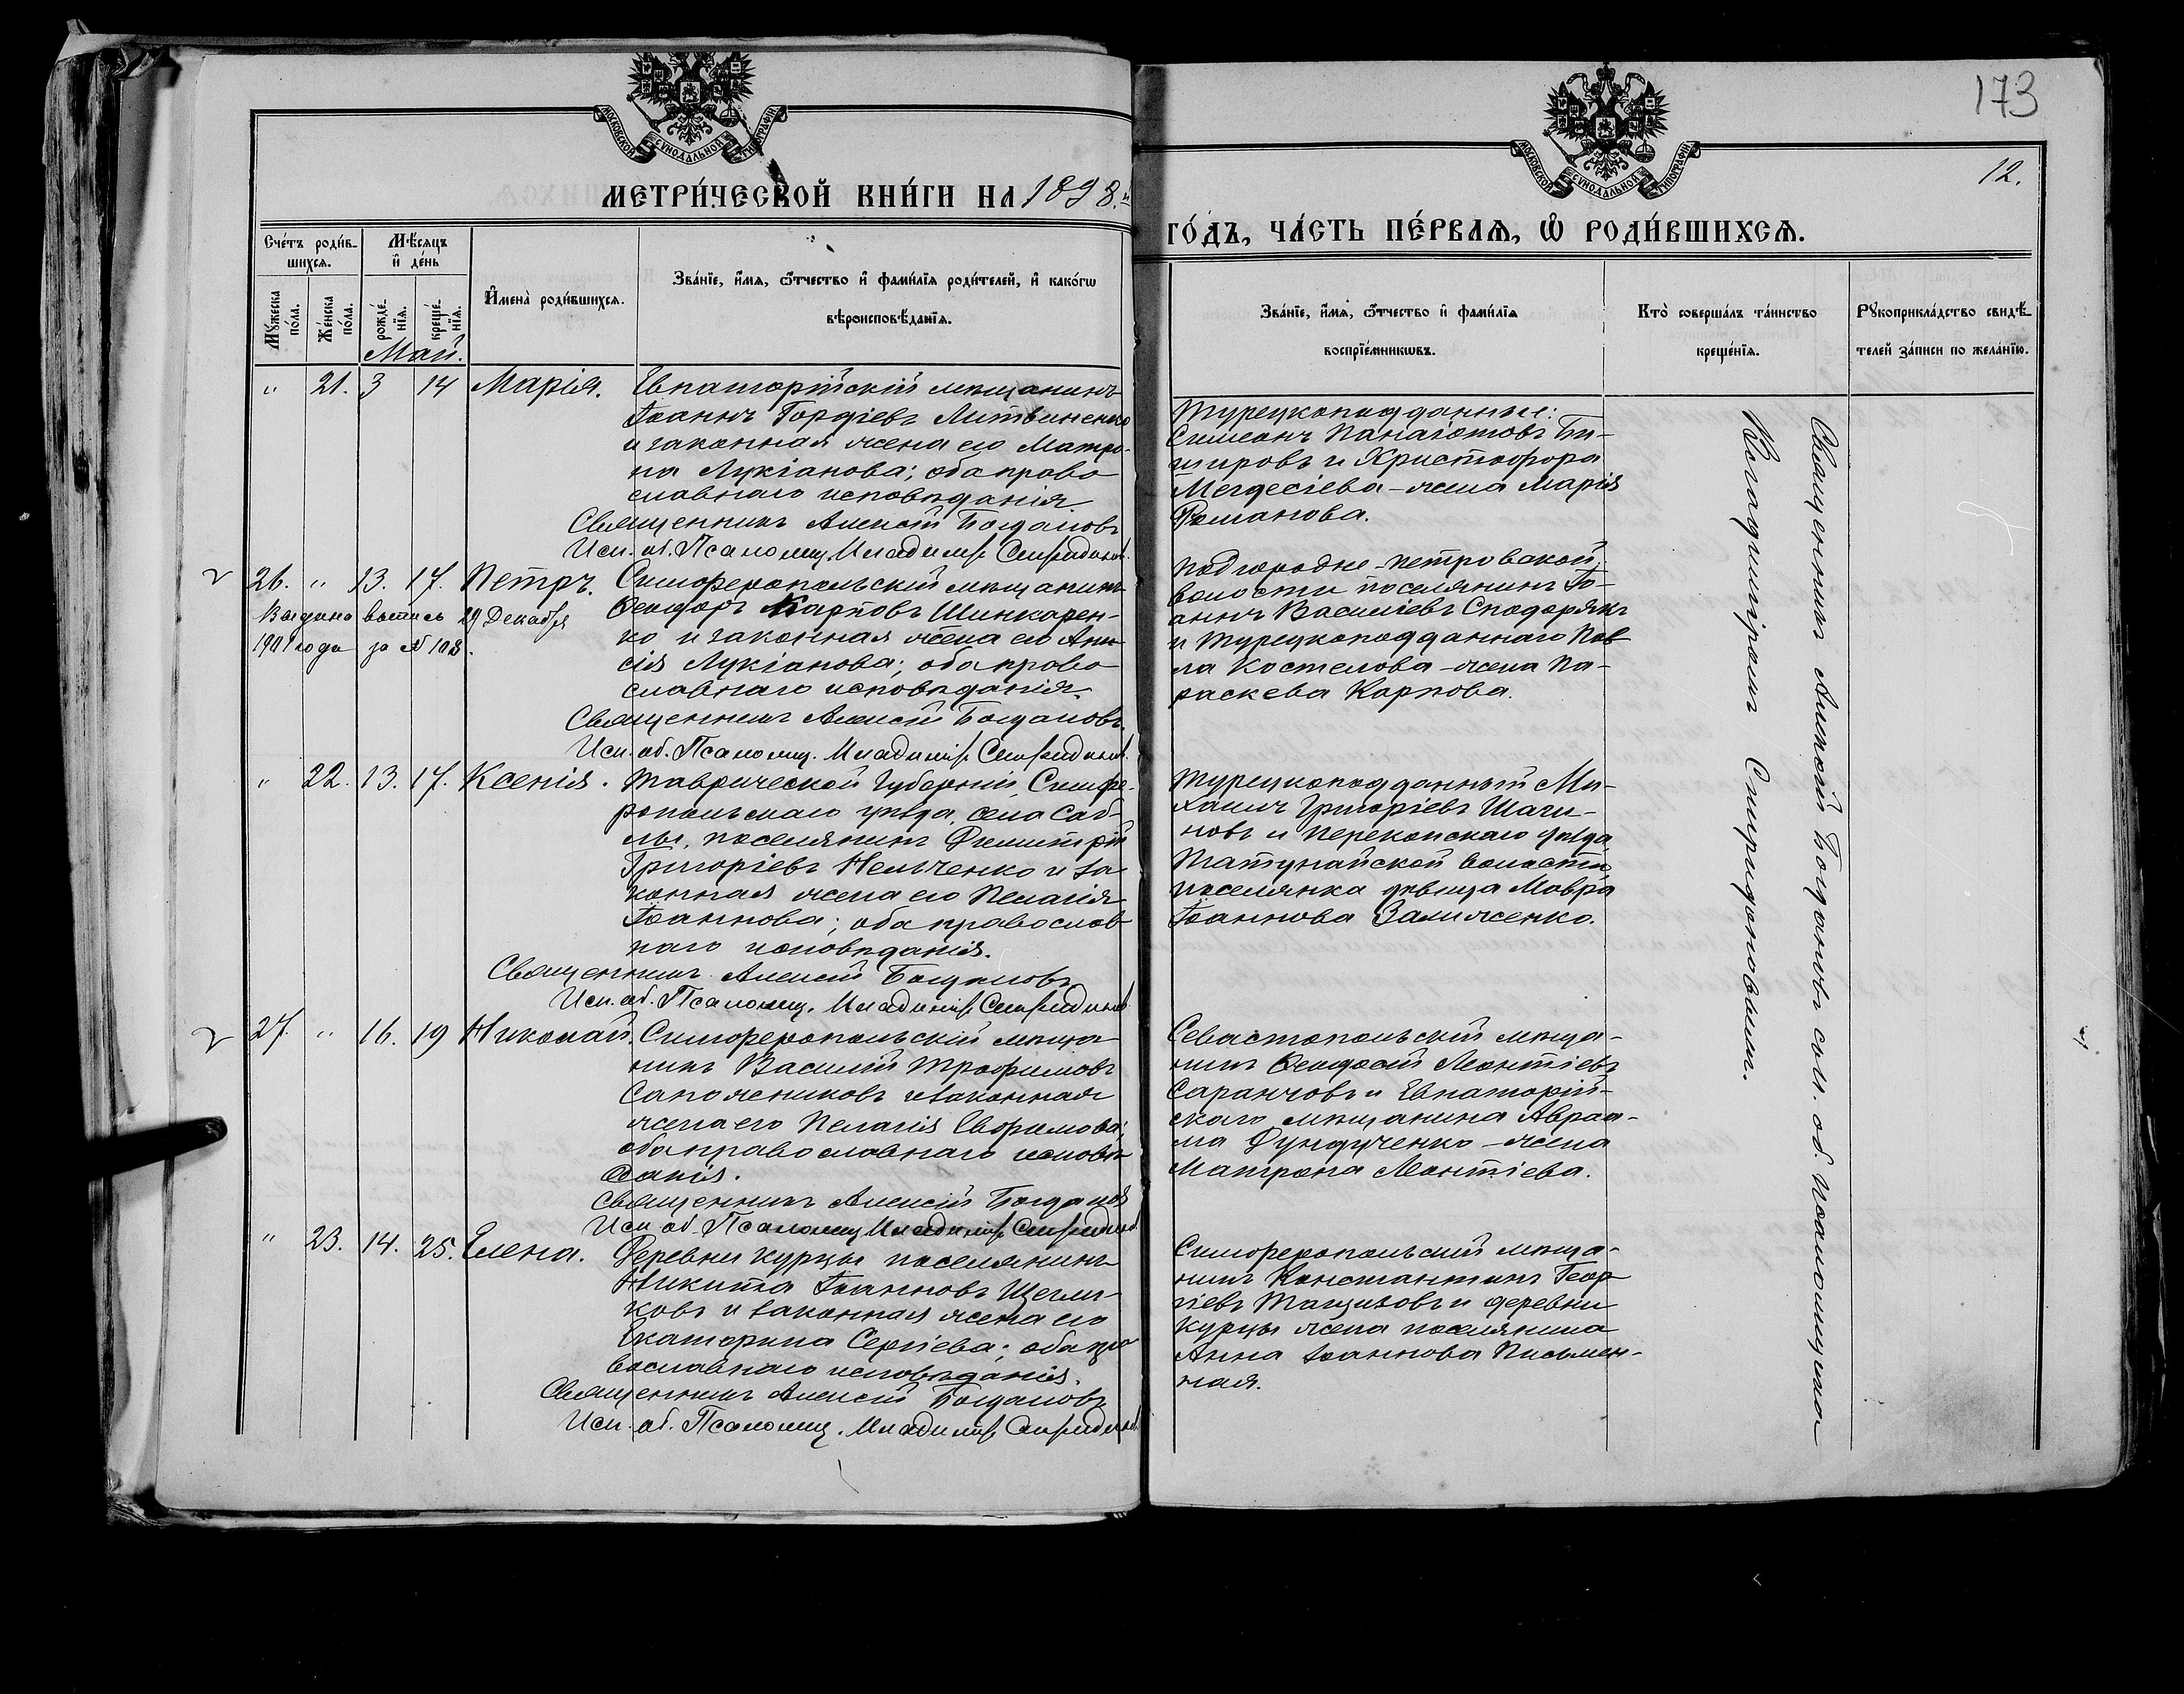 173
12.
МОСКОВСКОЙ СѴНОДАЛЬНОЙ ТИПОГРАФІИ
МЕТРИ́ЧЕСКОЙ КНИ́ГИ НА 1898.й
МОСКОВСКОЙ СѴНОДАЛЬНОЙ ТИПОГРАФІИ
ГО́ДЪ, ЧА́СТЬ ПЕ́РВАѦ, Ѡ РОДИ́ВШИХСѦ.
Сче́тъ роди́в-
шихсѧ.
Мѣ́сѧцъ
и де́нь
Мꙋ́жеска
по́ла.
Же́нска
по́ла.
рожде́-
нїѧ.
креще́-
нїѧ.
Имена̀ роди́вшихсѧ.
Зва́нїе, и́мѧ, ѻ́тчество и фами́лїѧ роди́телей, и како́гѡ
вѣроисповѣ́данїѧ.
Зва́нїе, и́мѧ, ѻ́тчество и фами́лїѧ
воспрїе́мникѡвъ.
Кто̀ соверша́лъ та́инство
креще́нїѧ.
Рꙋкоприкла́дство свидѣ́-
телей за́писи по жела́нїю.
Май.
" 21. 3 14 Марія.
Евпаторійскій мѣщанинъ
Іоаннъ Гордіевъ Литвиненко
и законная жена его Матро-
на Лукіанова; оба право
славнаго исповѣданія
Священникъ Алексій Богдановъ
Исп. об. Псаломщ. Владиміръ Спиридонов.
Турецкоподданные:
Симеонъ Панаіотовъ
и Христофора
жена Марія
Романова.
26. " 13. 17. Петръ.
Выдана выпись 29 Декабря
1901 года за № 108.
Симферопольскій мѣщанинъ
Ѳеодоръ Карповъ Шинкарен-
ко и законная жена его Ани-
сія Лукіанова; оба право
славнаго исповѣданія.
Священникъ Алексій Богдановъ
Исп. об. Псаломщ. Владиміръ Спиридонов.
Подгородне-Петровской
волости поселянинъ Іо-
аннъ Васильевъ Сподорякъ
и турецкоподданнаго Пав
ла Костелова - жена Па-
раскева Карпова.
" 22. 13. 17. Ксенія.
Таврической Губерніи, Симфе-
ропольскаго уѣзда, села Саб-
лы, поселянинъ Димитрій
Григоріевъ Нельченко и за
конная жена его Пелагія
Іоаннова; оба православ
наго исповѣданія.
Священникъ Алексій Богдановъ
Исп. об. Псаломщ. Владиміръ Спиридонов.
Турецкоподданный Ми-
хаилъ Григоріевъ Шаги-
новъ и Перекопскаго уѣзда
волости
поселянка дѣвица Мавра
Іоаннова Залиженко.
27. " 16. 19 Николай.
Симферопольскій мѣща-
нинъ Василій Трофимовъ
Сапожниковъ и законная
жена его Пелагія Ефимова;
оба православнаго исповѣ
данія.
Священникъ Алексій Богдановъ
Исп. об. Псаломщ. Владиміръ Спиридонов.
Севастопольскій мѣща-
нинъ Ѳеодосій Леонтіевъ
Саранчовъ и Евпаторій-
скаго мѣщанина Авраа-
ма Дундученко - жена
Матрона Леонтіева.
" 23. 14. 25. Елена.
Деревни Курцы поселянинъ
Никита Іоанновъ Щегли-
ковъ и законная жена его
Екатерина Сергіева; оба пра
вославнаго исповѣданія.
Священникъ Алексій Богдановъ
Исп. об. Псаломщ. Владиміръ Спиридонов.
Симферопольскій мѣща-
нинъ Константинъ Геор
гіевъ и деревни
Курцы жена поселянина
Анна Іоаннова Письмен-
ная.
Священникъ Алексій Богдановъ съ и. об. псаломщика
Владиміромъ Спиридоновымъ.